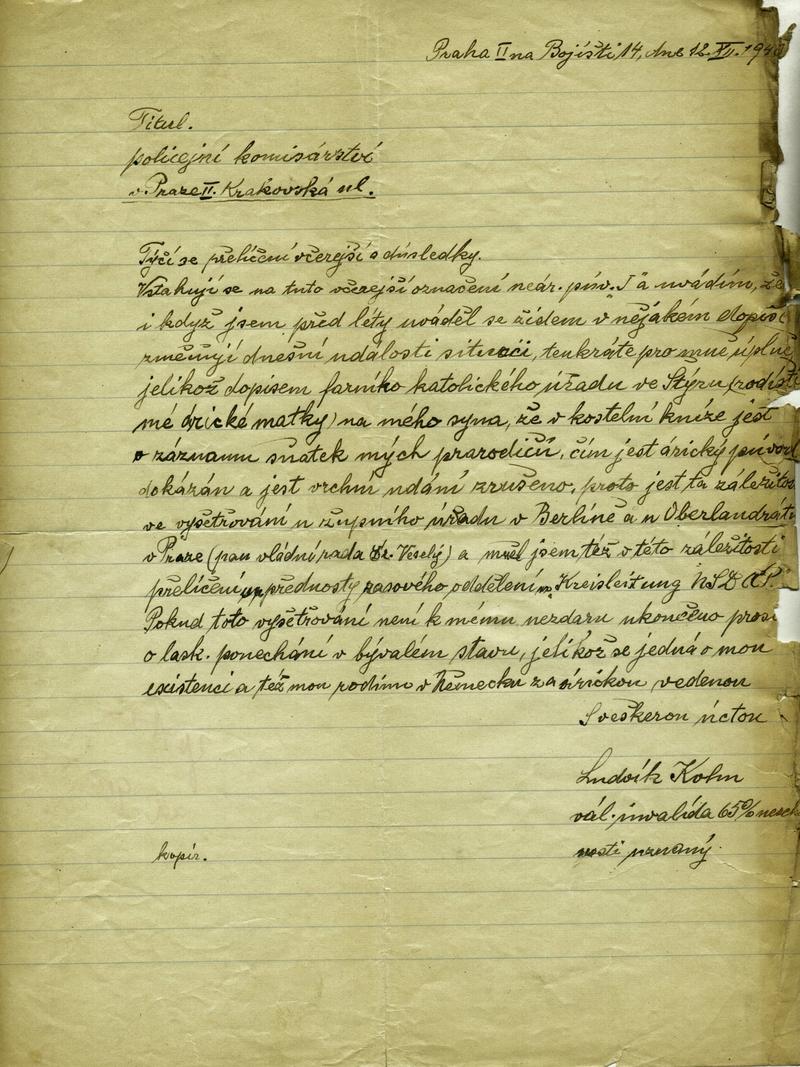 Praha II na Bojišti 14, dne 12. XII. 194
Titul.
policejní komisařství
v Praze II. Krakovská ul.
Týčí se přelíčení včerejší s důsledky.
Vztahují se na tuto včerejší označení neár. pův. "J" a uvádím, že
i když jsem před léty uváděl se židem v nějákém dopise
změňují dnešní události situaci, tenkráte pro mne úplně
jelikož dopisem farního katolického úřadu ve Štýru (rodišti
mé árické matky) na mého syna, že v kostelní knize jest
o záznamu sňatek mých prarodičů, čím jest árický původ
dokázán a jest vrchní udání zrušeno, proto jest ta záležitos
ve vyšetřování u župního úřadu v Berlíně a u Oberlandrátu
v Praze (pan vládní rada Dr. Veselý) a měl jsem též v této záležitosti
přelíčení u přednosty rasového oddělení Kreisleitung NSDAP.
Pokud toto vyšetřování není k mému nezdaru ukončeno prosí
o lask. ponechání v bývalém stavu, jelikož se jedná o mou
existenci a též mou rodinu v Německu za árickou vedenou
S veškerou úctou
Ludvík Kohn
vál. invalida 65%
uznaný.
kopir.